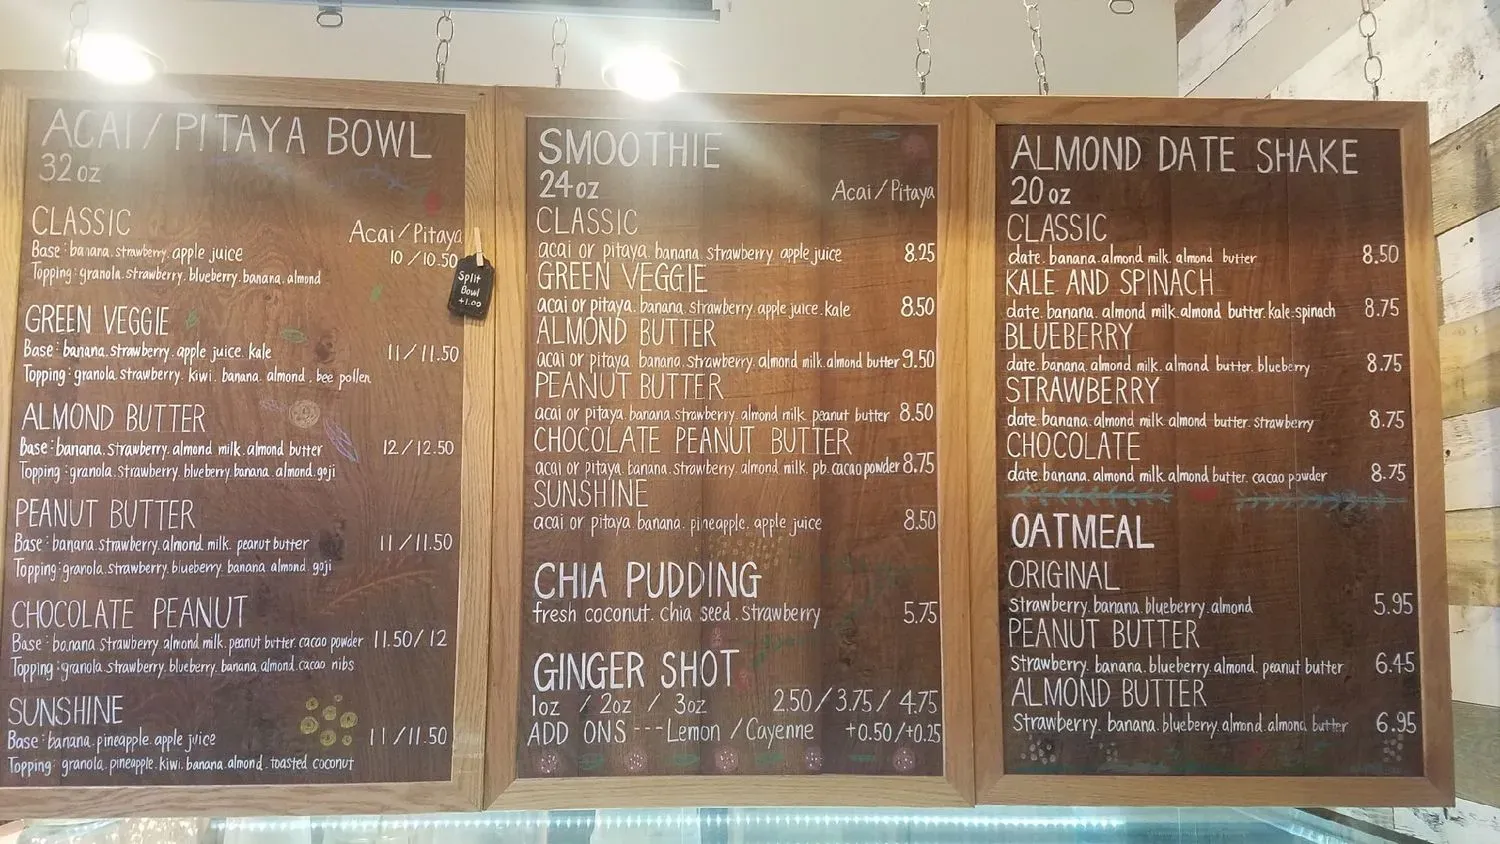 ACAI/PITAYA BOWL
32oz
CLASSIC
Acai/Pitaya
Base: banana.strawberry.apple juice
10/10.50
Topping: granola.strawberry.blueberry.banana.almond
Split
Bowl
+1.00
GREEN VEGGIE
Base: banana.strawberry.apple juice.kale
11/11.50
Topping: granola.strawberry.kiwi.banana.almond.bee pollen
ALMOND BUTTER
Base: banana.strawberry.almond milk.almond butter
12/12.50
Topping: granola.strawberry.blueberry.banana.almond.goji
PEANUT BUTTER
Base: banana.strawberry.almond milk.peanut butter
11/11.50
Topping: granola.strawberry.blueberry.banana.almond.goji
CHOCOLATE PEANUT
Base: banana.strawberry.almond milk.peanut butter.cacao powder 11.50/12
Topping: granola.strawberry.blueberry.banana.almond.cacao nibs
SUNSHINE
Base: banana.pineapple.apple juice
11/11.50
Topping: granola.pineapple.kiwi.banana.almond.toasted coconut
SMOOTHIE
24oz
Acai/Pitaya
CLASSIC
acai or pitaya.banana.strawberry.apple juice 8.25
GREEN VEGGIE
acai or pitaya.banana.strawberry.apple juice.kale 8.50
ALMOND BUTTER
acai or pitaya.banana.strawberry.almond milk.almond butter 9.50
PEANUT BUTTER
acai or pitaya.banana.strawberry.almond milk.peanut butter 8.50
CHOCOLATE PEANUT BUTTER
acai or pitaya.banana.strawberry.almond milk.pb.cacao powder 8.75
SUNSHINE
acai or pitaya banana.pineapple.apple juice 8.50
CHIA PUDDING
fresh coconut.chia seed.strawberry 5.75
GINGER SHOT
1oz / 2oz / 3oz 2.50/3.75/4.75
ADD ONS---Lemon/Cayenne +0.50/+0.25
ALMOND DATE SHAKE
20oz
CLASSIC
date.banana.almond milk.almond butter 8.50
KALE AND SPINACH
date.banana.almond milk.almond butter.kale.spinach 8.75
BLUEBERRY
date.banana.almond milk.almond butter.blueberry 8.75
STRAWBERRY
date.banana.almond milk.almond butter.strawberry 8.75
CHOCOLATE
date.banana.almond milk.almond butter.cacao powder 8.75
OATMEAL
ORIGINAL
strawberry.banana.blueberry.almond 5.95
PEANUT BUTTER
strawberry.banana.blueberry.almond.peanut butter 6.45
ALMOND BUTTER
strawberry.banana.blueberry.almond.almond butter 6.95